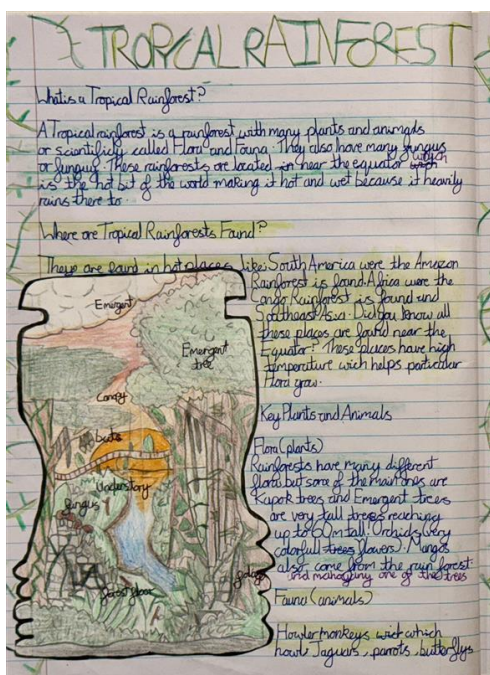 TROPYCAL RAINFOREST
What is a Tropical Rainforest?
A Tropical rainforest is a rainforest with many plants and animals
or scientificly called Flora and Fauna. They also have many fungus
or fungug. These rainforests are located in near the equator wich
is the hot bit of the world making it hot and wet because it heavily
rains there to.
Where are Tropical Rainforests Found?
They are found in hot places like South America were the Amazon
Rainforest is found Africa were the
Congo Rainforest is found and
Southeast Asia. Did you know all
these places are found near the
Equator? These places have high
temperature wich helps particular
Flora grow.
Key Plants and Animals
Flora (plants)
Rainforests have many different
flora but some of the main ones are
Kapok trees and Emergent trees
are very tall trees reaching
up to 60m tall. Orchids (very
colorfull trees flowers). Mangos
also come from the rain forest
and mahogany one of the trees
Fauna (animals)
Howler monkeys which
howl Jaguars, parrots, butterflys
Emergent
Emergent
tree
Canopy
huts
Understory
fungus
forest floor